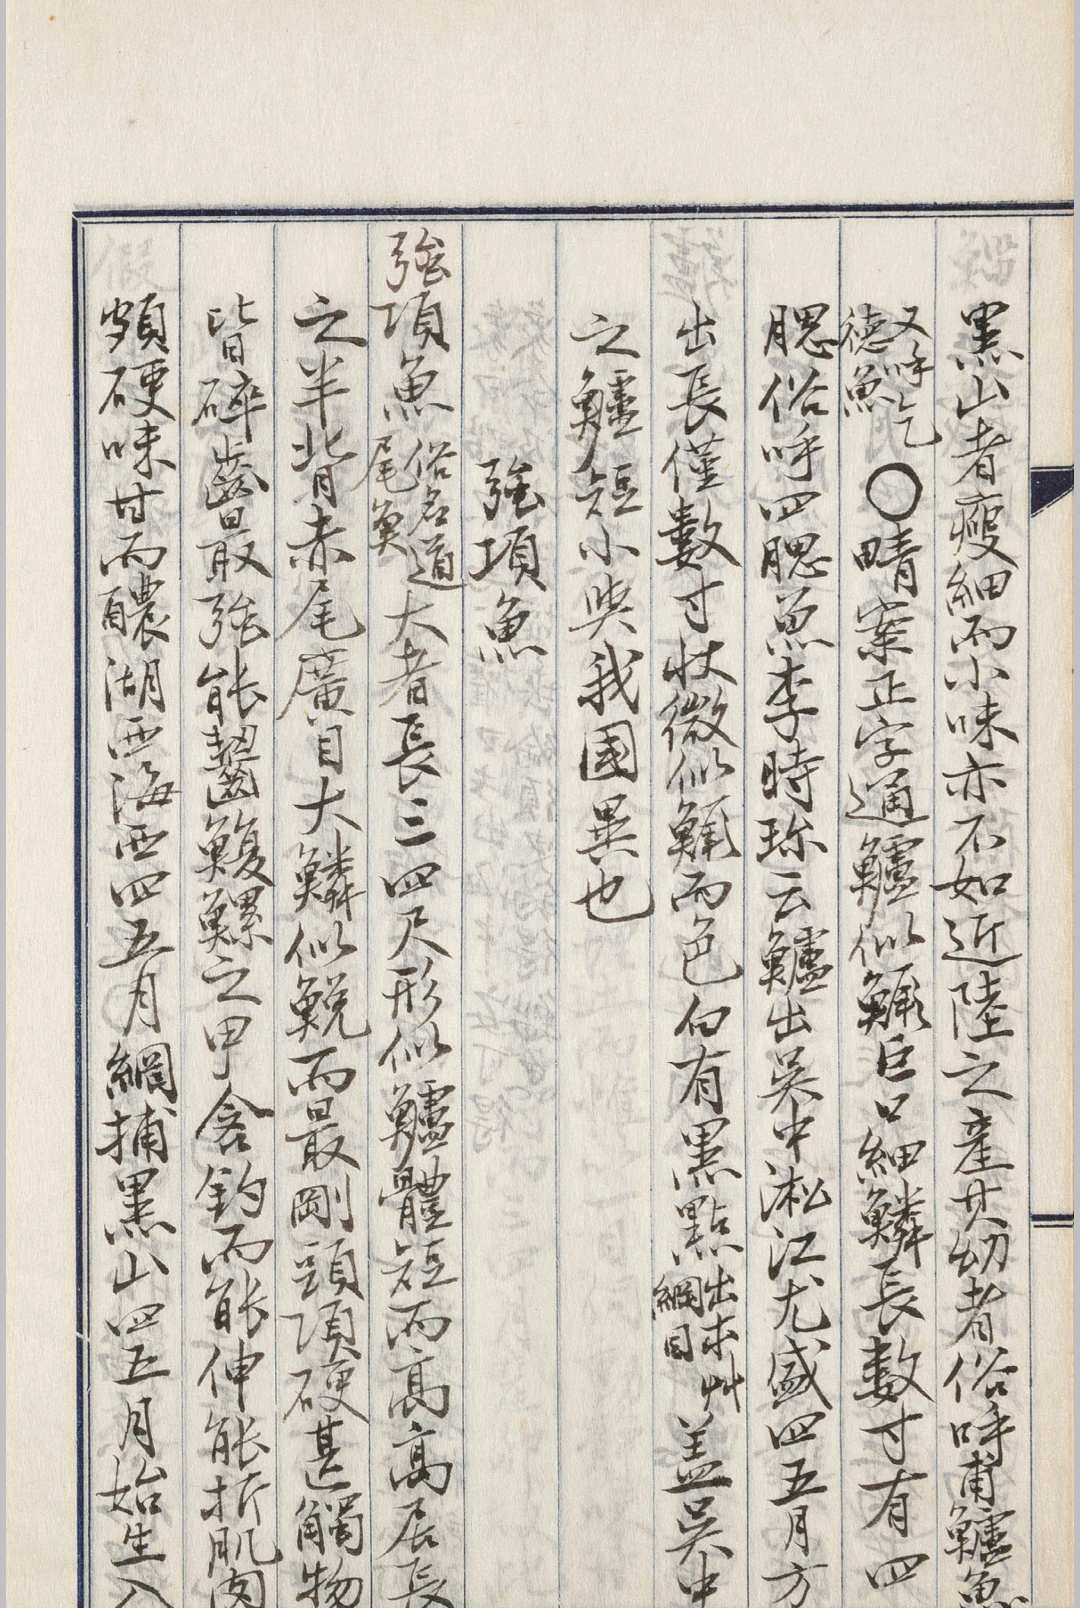 黑山者瘦細而小味亦不如近陸之產其幼者俗呼甫鱸魚
又呼乞德魚○晴案正字通鱸似鱖巨口細鱗長數寸有四
腮俗呼四腮魚李時珍云鱸出吳中淞江尤盛四五月方
出長僅數寸狀微似鱖而色白有黑點出本艸綱目盖吳中
之鱸短小與我國異也
強項魚
強項魚俗名道尾魚大者長三四尺形似鱸體短而高高居長
之半背赤尾廣目大鱗似鮸而最剛頭項硬甚觸物
皆碎齒最強能齧鰒螺之甲含鉤而能伸能折肌肉
頗硬味甘而醲湖西海西四五月網捕黑山四五月始生入